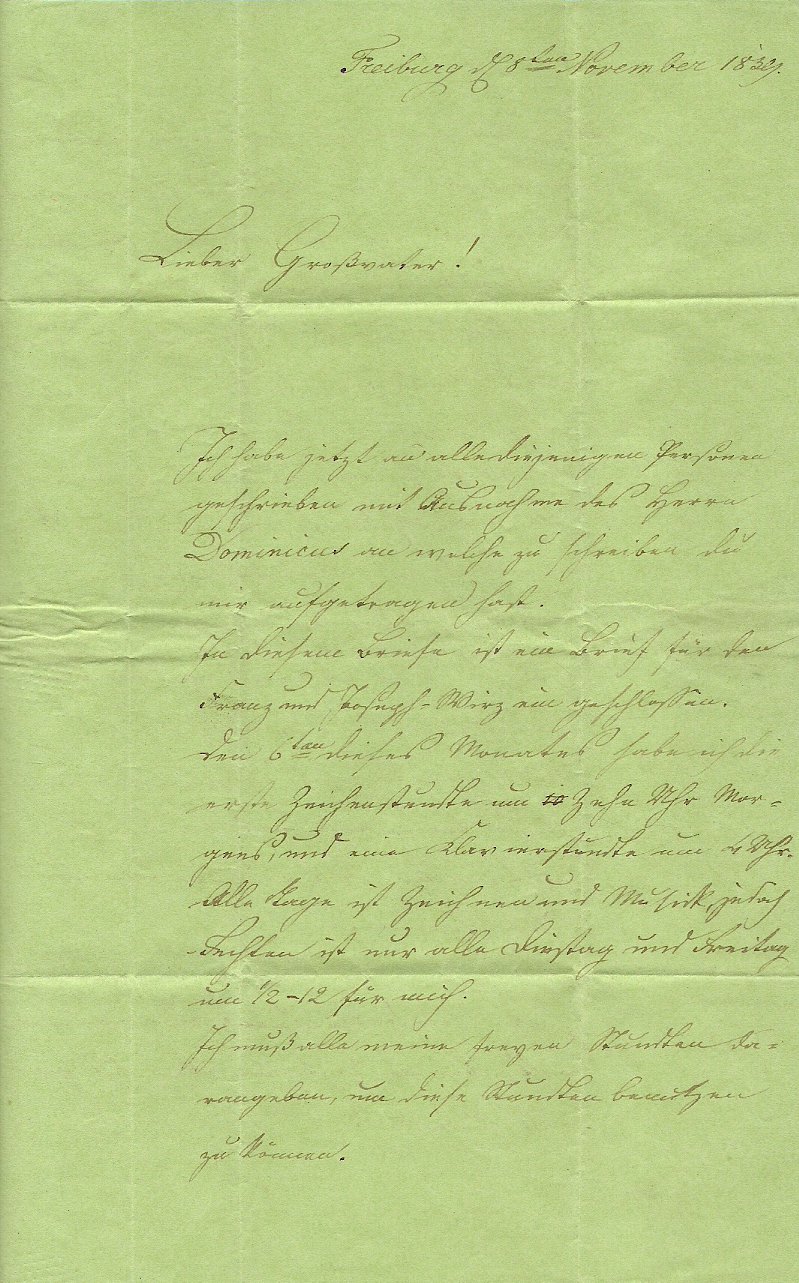 Freiburg d 8ten November 1839.
Lieber Großvater!
Ich habe jetzt an alle diejenigen Personen
geschrieben mit Ausnahme des Herrn
Dominicus an welche zu schreiben du
mir aufgetragen hast.
In diesem Briefe ist ein Brief für den
Franz und Joseph-Wirz ein geschlossen.
Den 6ten dieses Monates habe ich die
erste Zeichenstundte um 10 Zehn Uhr Mor-
gens, und eine Klavierstundte um 4 Uhr.
Alle Tage ist Zeichnen und Musick, jedoch
Fechten ist nur alle Dinstag und Freitag
um 1/2-12 für mich.
Ich muß alle meine freyen Stundten da-
rangeben, um diese Stundten benutzen
zu können.